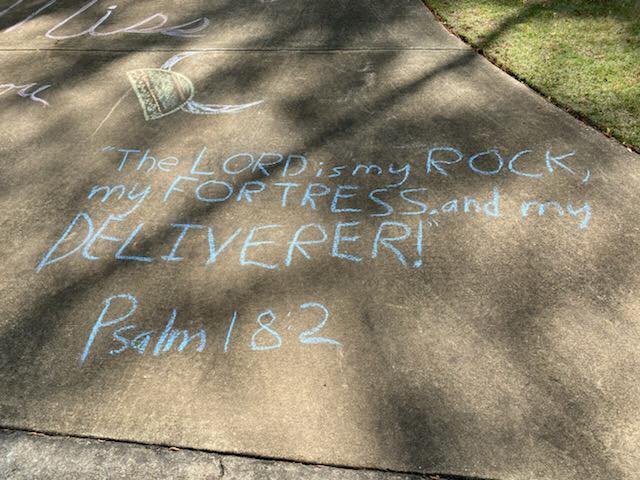 Miss
"The LORD is my ROCK,
my FORTRESS, and my
DELIVERER!"
Psalm 18:2